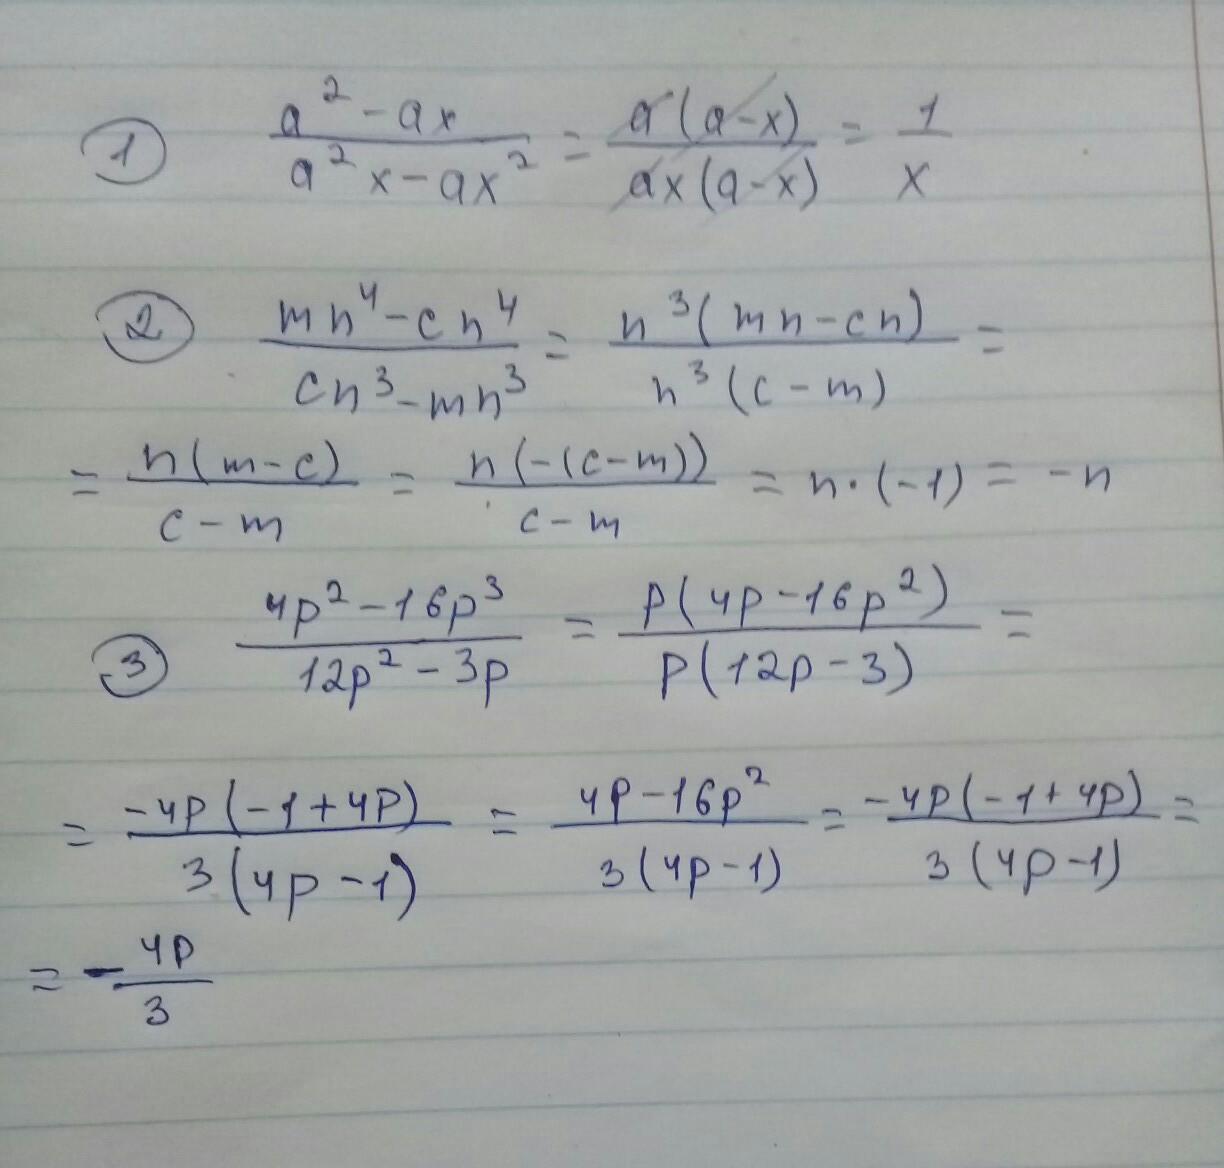 ① (a² - ax)/(a²x - ax²) = (a(a-x))/(ax(a-x)) = 1/x
② (mn⁴ - cn⁴)/(cn³ - mn³) = (n³(mn - cn))/(n³(c - m)) =
= (n(m - c))/(c - m) = (n(-(c - m)))/(c - m) = n · (-1) = -n
③ (4p² - 16p³)/(12p² - 3p) = (p(4p - 16p²))/(p(12p - 3)) =
= (-4p(-1 + 4p))/(3(4p - 1)) = (4p - 16p²)/(3(4p - 1)) = (-4p(-1 + 4p))/(3(4p - 1)) =
= - 4p/3